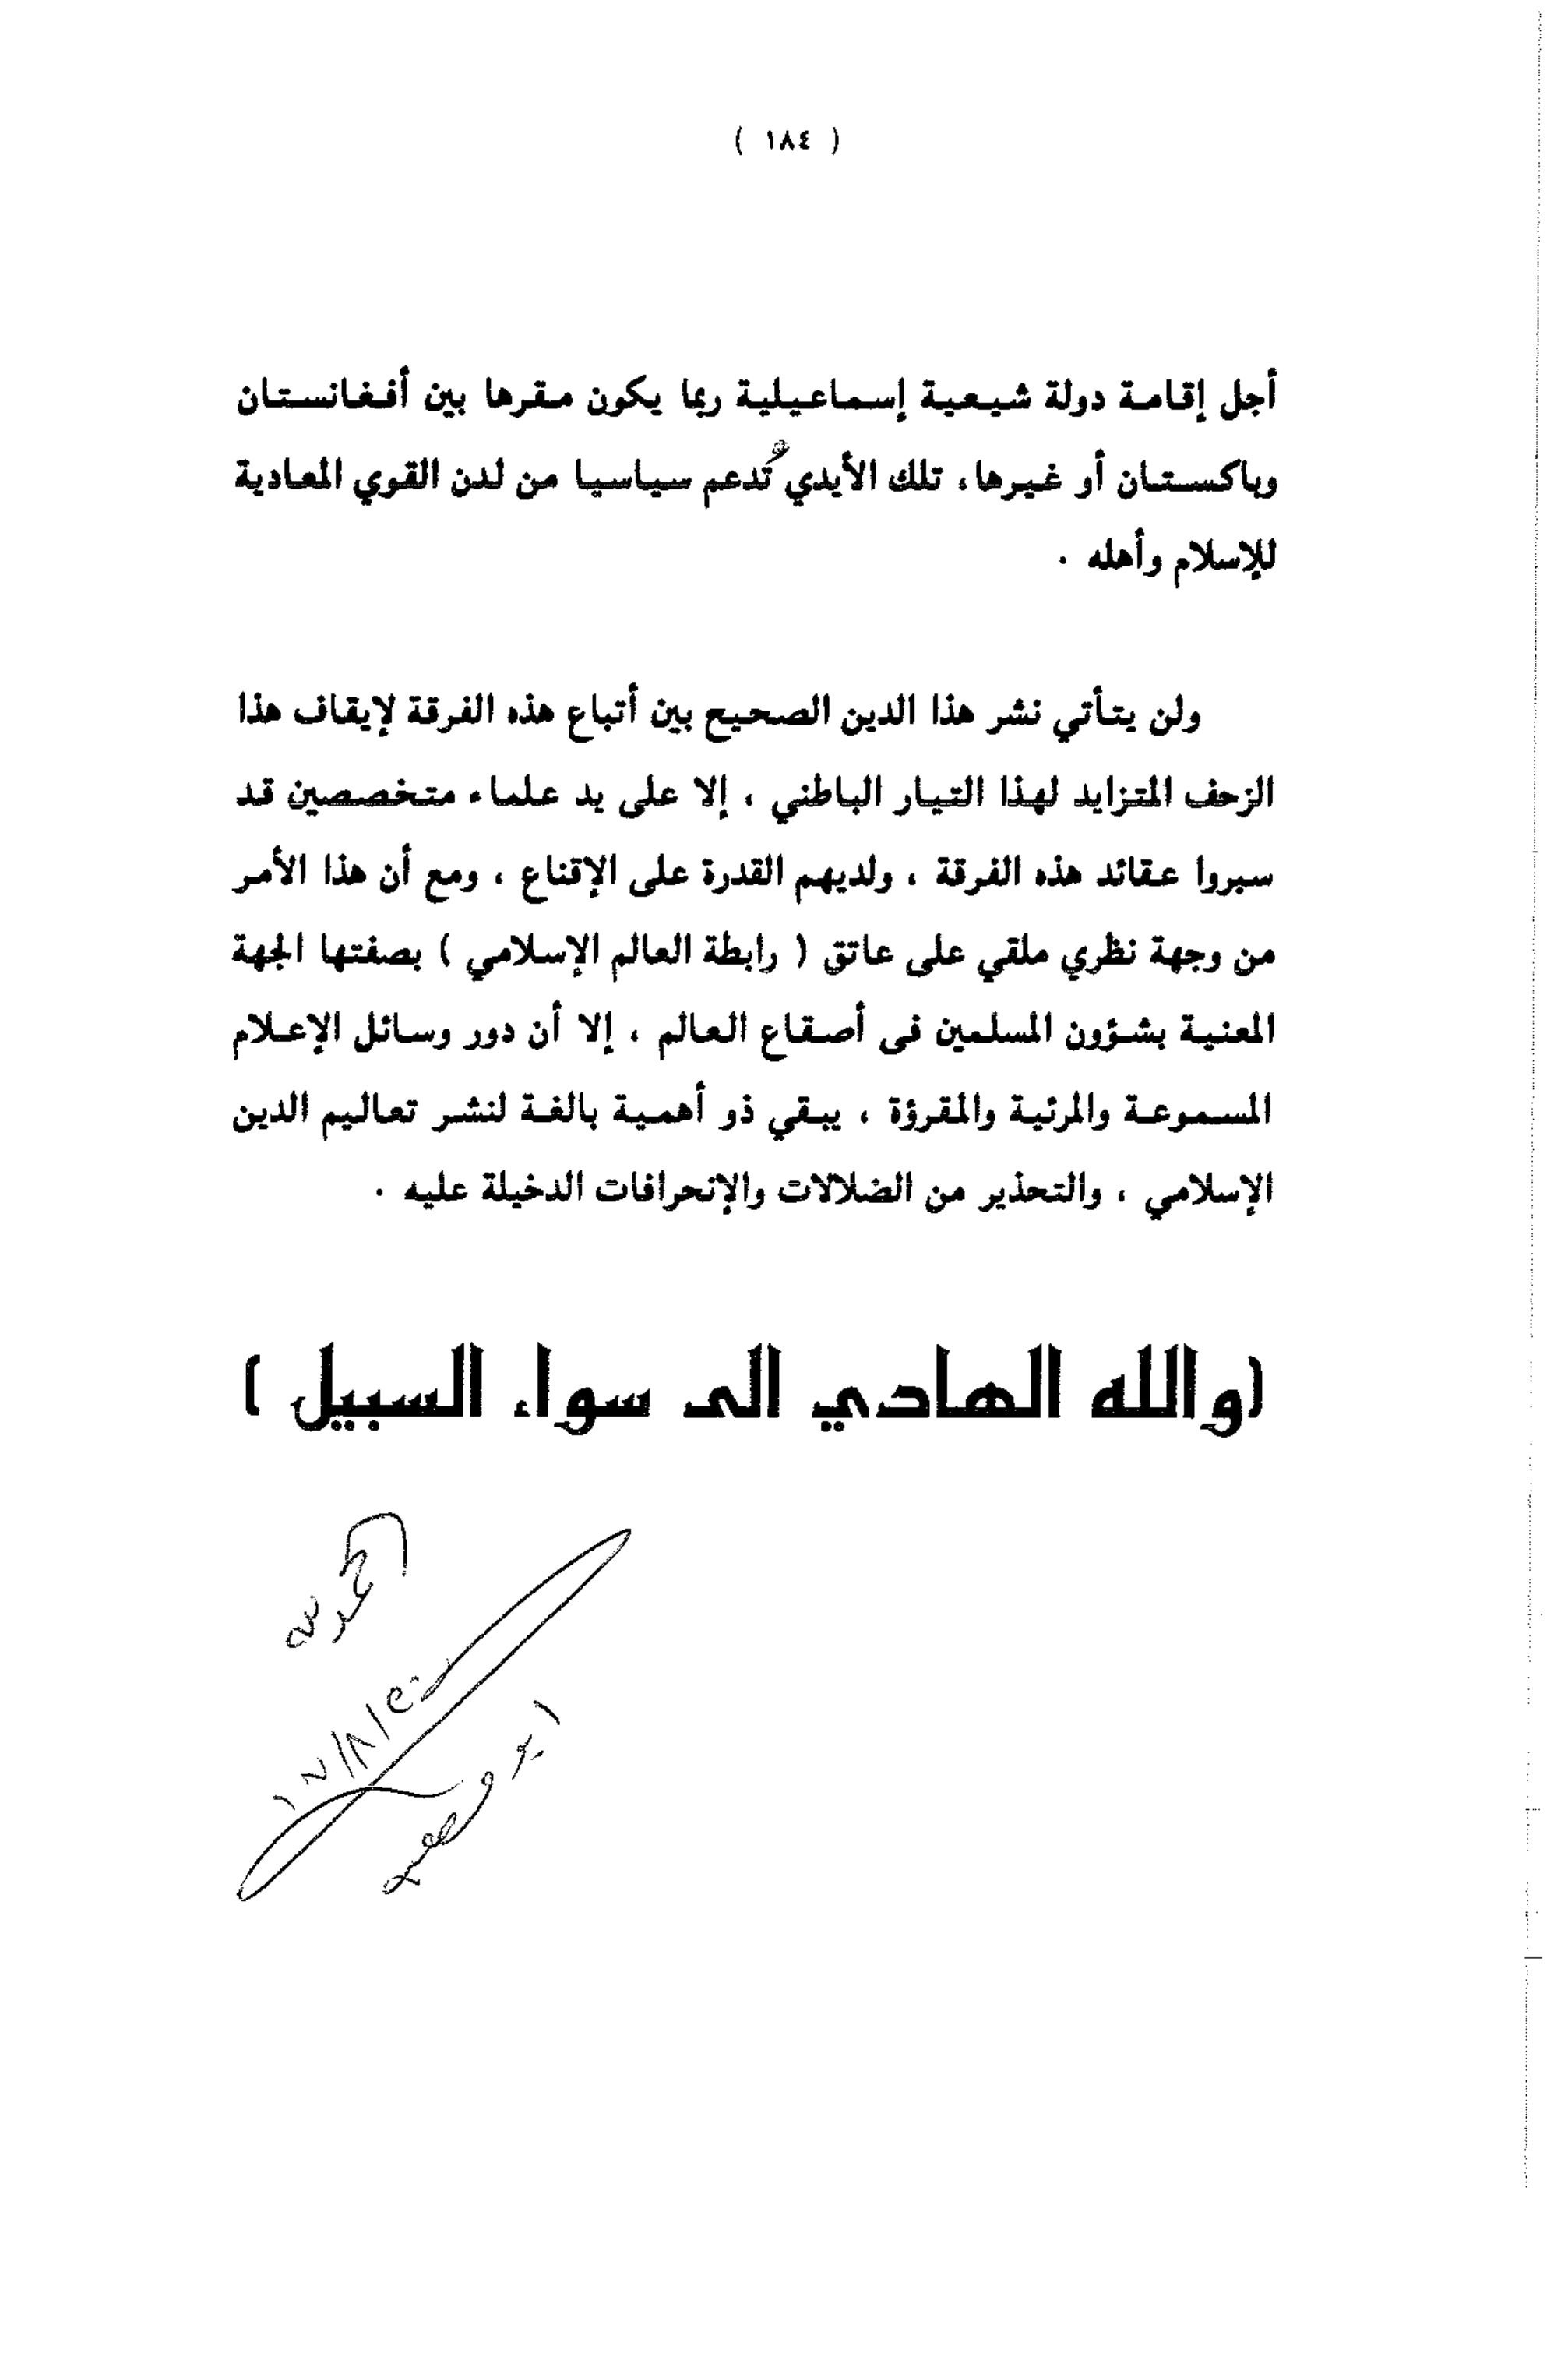 ( ١٨٤ )
أجل إقامة دولة شيعية إسماعيلية ربما يكون مقرها بين أفغانستان
وباكستان أو غيرها، تلك الأيدي تُدعم سياسيا من لدن القوي المعادية
للإسلام وأهله .
ولن يتأتي نشر هذا الدين الصحيح بين أتباع هذه الفرقة لإيقاف هذا
الزحف المتزايد لهذا التيار الباطني ، إلا على يد علماء متخصصين قد
سبروا عقائد هذه الفرقة ، ولديهم القدرة على الإقناع ، ومع أن هذا الأمر
من وجهة نظري ملقي على عاتق ( رابطة العالم الإسلامي ) بصفتها الجهة
المعنية بشؤون المسلمين فى أصقاع العالم ، إلا أن دور وسائل الإعلام
المسموعة والمرئية والمقرؤة ، يبقي ذو أهمية بالغة لنشر تعاليم الدين
الإسلامي ، والتحذير من الضلالات والإنحرافات الدخيلة عليه .
(والله الهادي الى سواء السبيل )
الحمد لله